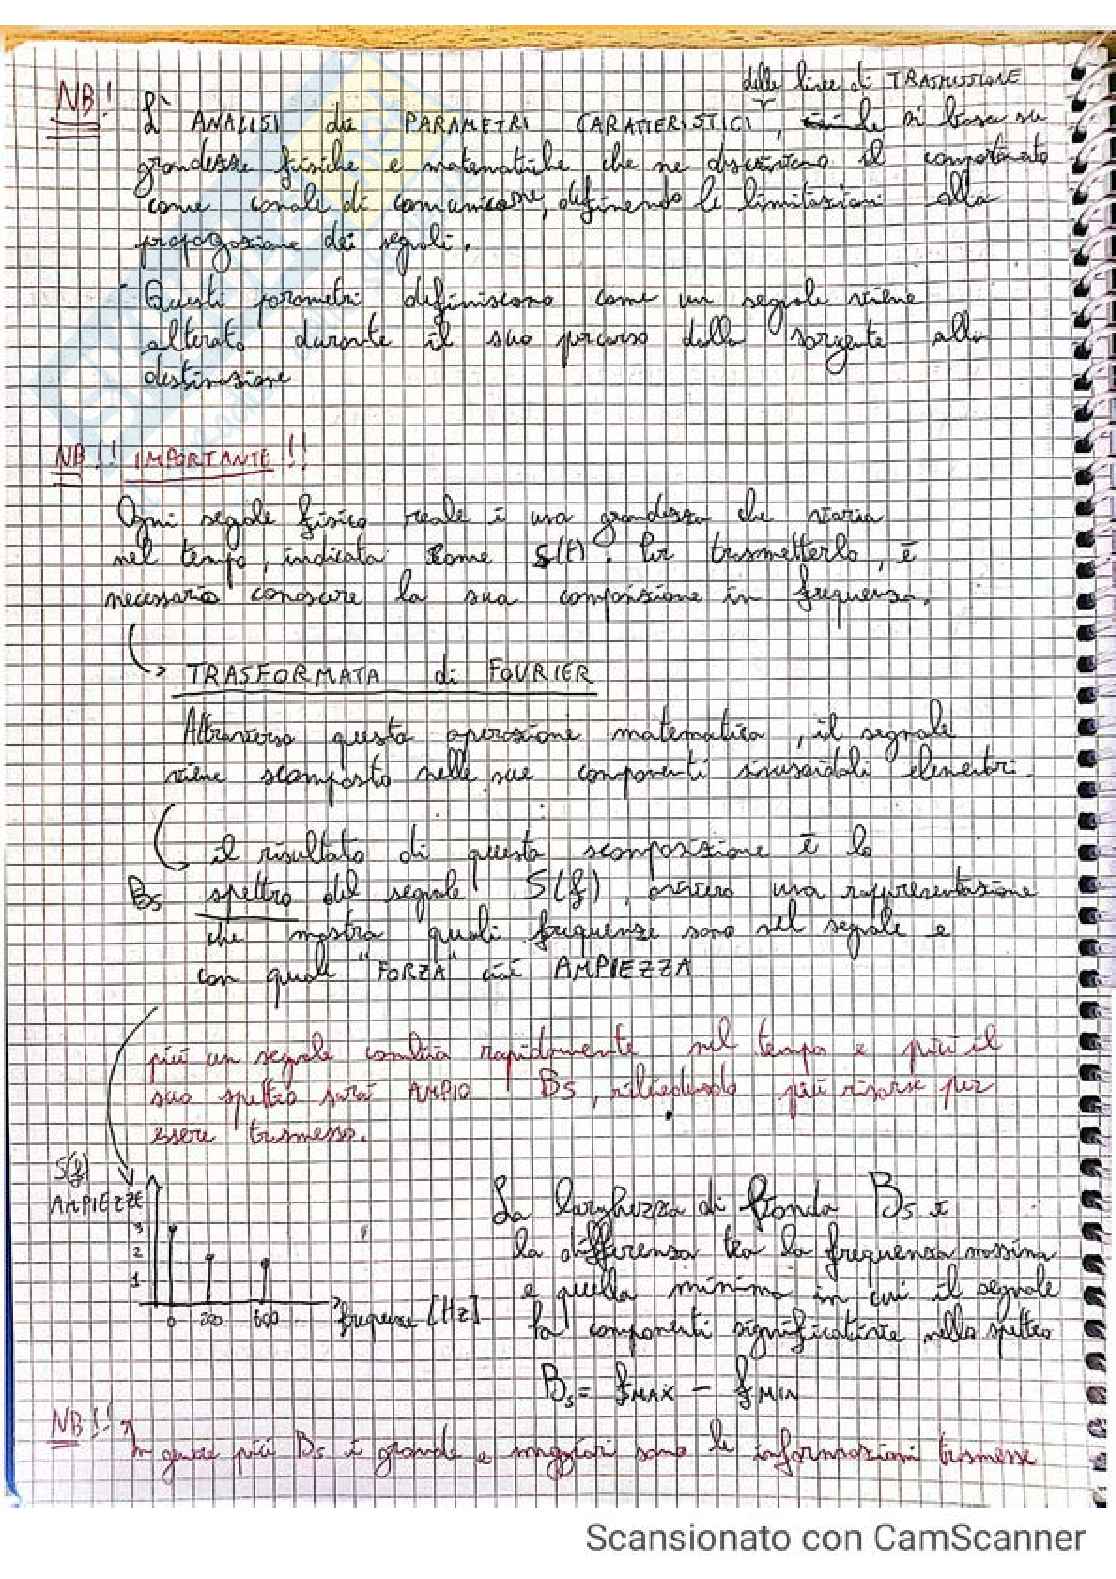 delle linee di TRASMISSIONE
NB! L'ANALISI dei PARAMETRI CARATTERISTICI, si basa su
grandezze fisiche e matematiche che ne descrivono il comportamento
come canale di comunicazione, definendo le limitazioni alla
propagazione dei segnali.
Questi parametri definiscono come un segnale viene
alterato durante il suo percorso dalla sorgente alla
destinazione
NB!! IMPORTANTE!!
Ogni segnale fisico reale è una grandezza che varia
nel tempo, indicata come s(t). Per trasmetterlo, è
necessario conoscere la sua composizione in frequenza.
TRASFORMATA di FOURIER
Attraverso questa operazione matematica, il segnale
viene scomposto nelle sue componenti sinusoidali elementri.
il risultato di questa scomposizione è lo
Bs spettro del segnale S(f), ovvero una rappresentazione
che mostra quali frequenze sono nel segnale e
con quale "FORZA" cioè AMPIEZZA
più un segnale cambia rapidamente nel tempo e più il
suo spettro sarà AMPIO Bs, richiedendo più risorse per
essere trasmesso.
S(f)
AMPIEZZE
3
2
1
0 200 600
frequenze [Hz]
La larghezza di Banda Bs è
la differenza tra la frequenza massima
e quella minima in cui il segnale
ha componenti significative nello spettro
Bs = fMAX - fMIN
NB!! In genere più Bs è grande e maggiori sono le informazioni trasmesse
Scansionato con CamScanner